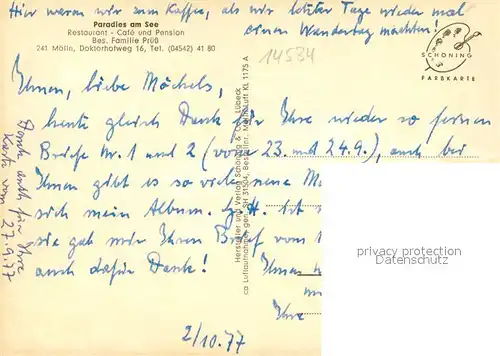 Hier waren wir zum Kaffee, als wir letzter Tage wieder mal
einen Wandertag machten!
Paradies am See
Restaurant - Café und Pension
Bes. Familie Prüß
241 Mölln, Doktorhofweg 16, Tel. (04542) 41 80
14534
SCHÖNING
FARBKARTE
Ihnen, liebe Möchels,
heute gleich Dank für Ihre wieder so
Briefe Nr. 1 und 2 (vom 23. und 24.9.), auch bei
Ihnen gibt es so viele neue M
sich mein Album.
sie gab mir Ihren Brief vom 1
auch dafür Dank!
Ihnen
Ihre
2/10.77
Dank auch für Ihre
Karte vom 27.9.77
Hersteller und Verlag Schöning & Co., Lübeck
ca Luftaufnahmen gen. SH 31504, Bestellnr. Mölln/Luft KL 1175 A
privacy protection
Datenschutz